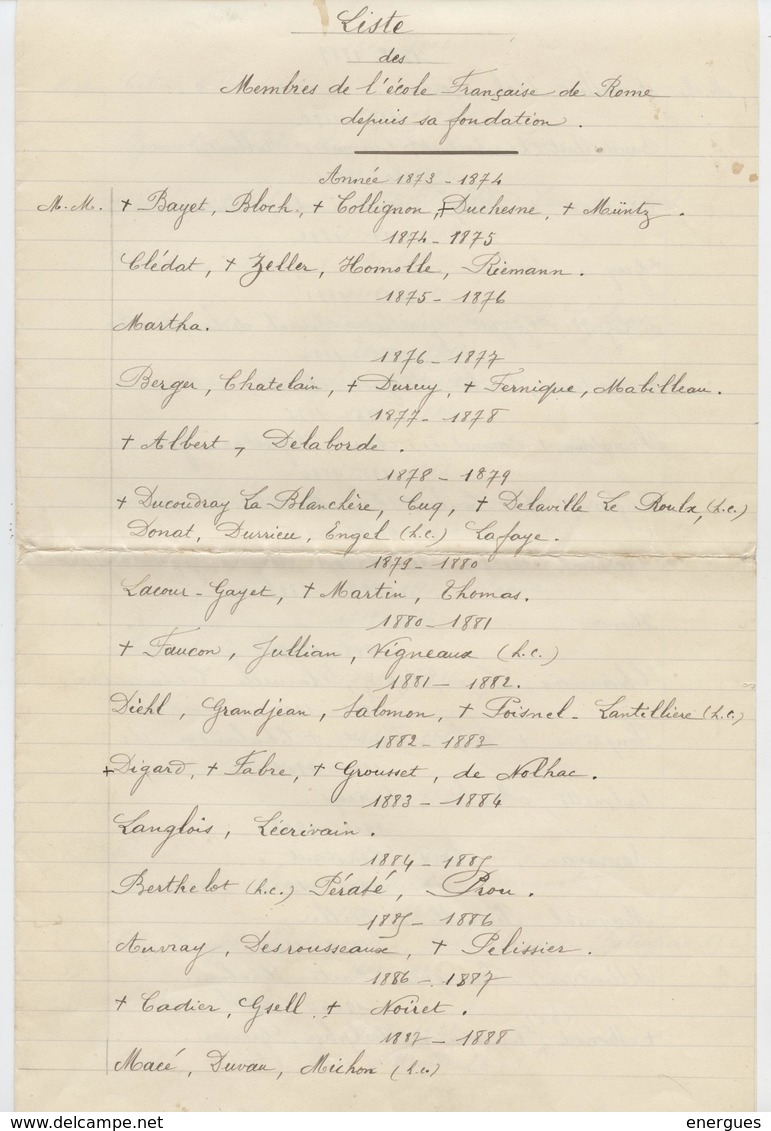 Liste
des
Membres de l'école Française de Rome
depuis sa fondation.
Année 1873 - 1874
M.M. + Bayet, Bloch, + Collignon, + Duchesne, + Müntz.
1874 - 1875
Clédat, + Zeller, Homolle, Riemann.
1875 - 1876
Martha.
1876 - 1877
Berger, Chatelain, + Duruy, + Fernique, Mabilleau.
1877 - 1878
+ Albert, Delaborde.
1878 - 1879
+ Ducoudray La Blanchère, Cuq, + Delaville Le Roulx, (h.c.)
Donat, Durrieu, Engel (h.c.) Lafaye.
1879 - 1880
Lacour-Gayet, + Martin, Thomas.
1880 - 1881
+ Faucon, Jullian, Vigneaux (h.c.)
1881 - 1882.
Diehl, Grandjean, Salomon, + Poisnel-Lantillière (h.c.)
1882 - 1883
+ Digard, + Fabre, + Grousset, de Nolhac.
1883 - 1884
Langlois, Lécrivain.
1884 - 1885
Berthelot (h.c.) Pératé, Prou.
1885 - 1886
Auvray, Desrousseaux, + Pelissier.
1886 - 1887
+ Cadier, Gsell, + Noiret.
1887 - 1888
Macé, Duvau, Michon (h.c.)
energues